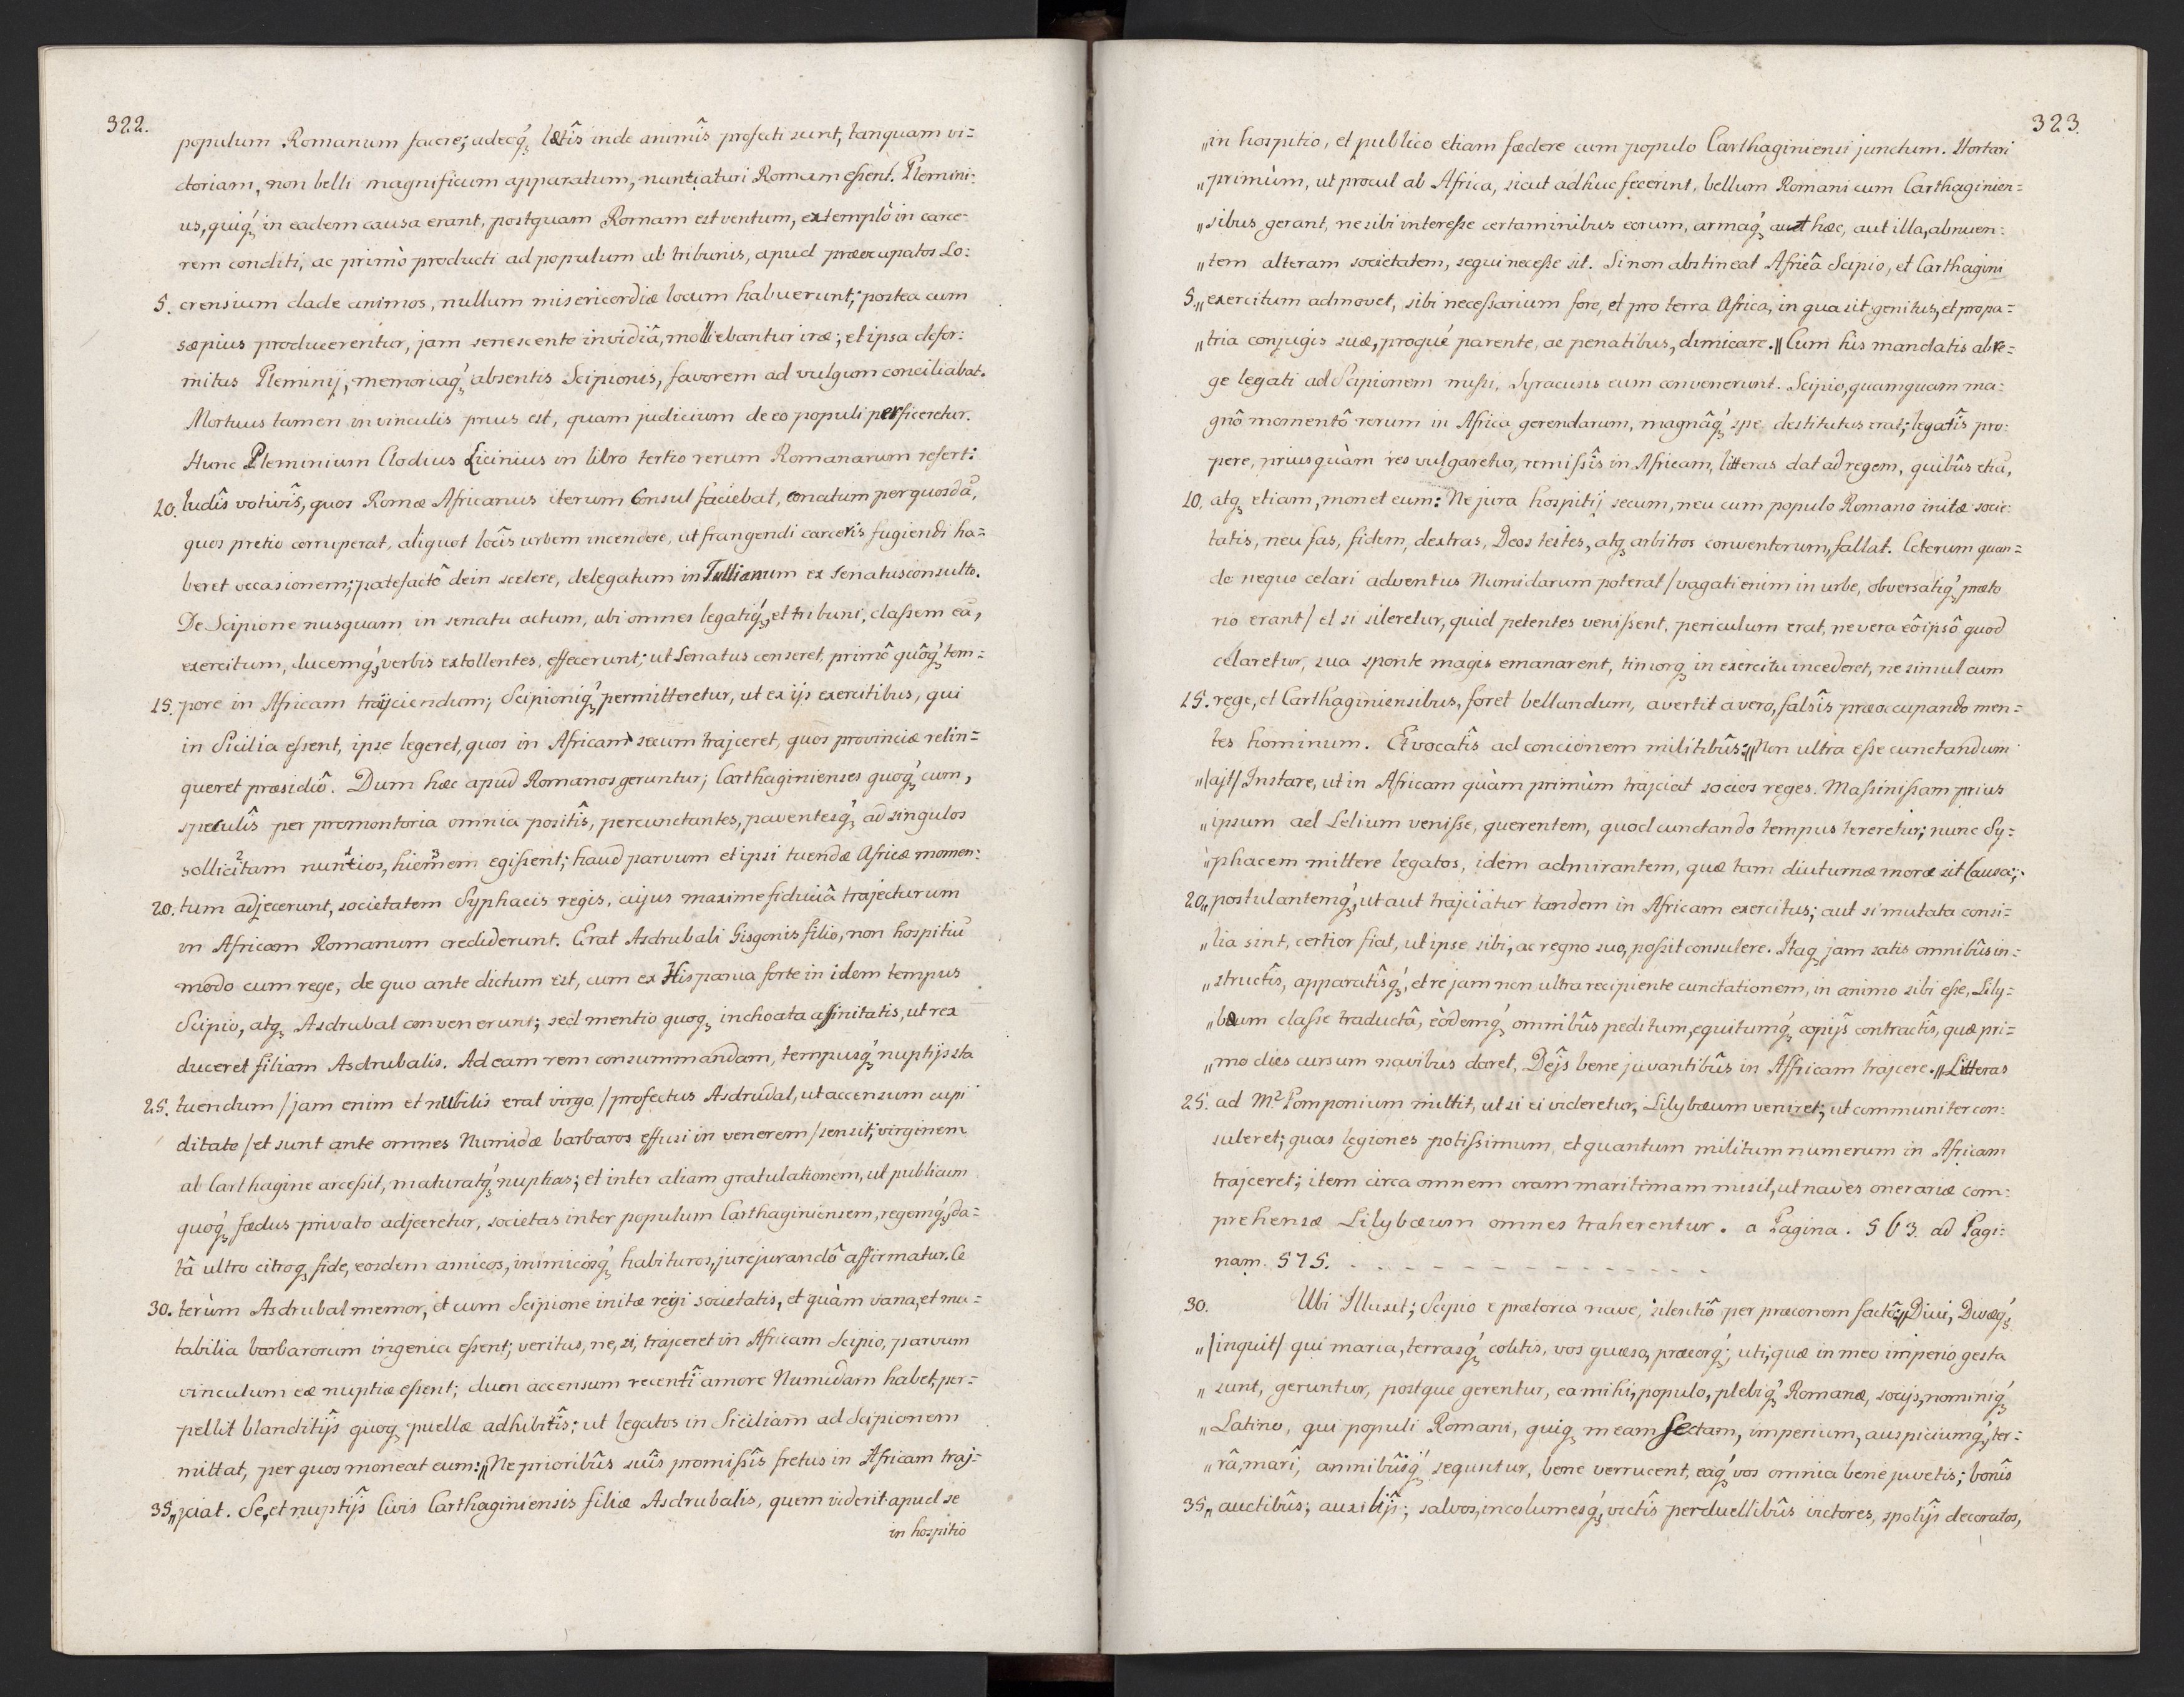 322.
populum Romanum facere; adeoq́ʒ lætîs inde animîs profecti sunt, tanquam vi=
ctoriam, non belli magnificum apparatum, nuntiaturi Romam eſsent. Plemini:
us, quiq́ʒ in eadem causa erant, postquam Romam est ventum, extemplò in carce=
rem conditi, ac primò producti ad populum ab tribunis, apud præoccupatos Lo:
5. crensium clade animos, nullum misericordiæ locum habuerunt; postea cum
sæpius producerentur, jam senescente invidiâ, molliebantur iræ; et ipsa defor:
mitas Pleminij, memoriaq́ʒ absentis Scipionis, favorem ad vulgum conciliabat.
Mortuus tamen in vinculis prius est, quam judicium de eo populi perficeretur.
Hunc Pleminium Clodius Licinius in libro tertio rerum Romanarum refert:
10. ludîs votivîs, quos Romæ Africanus iterum Consul faciebat, conatum per quosdã,
quos pretio corruperat, aliquot locîs urbem incendere, ut frangendi carceris fugiendi ha=
beret occasionem; patefactô dein scelere, delegatum in Tullianum ex Senatusconsulto.
De Scipione nusquam in senatu actum, ubi omnes legatiq́ʒ, et tribuni, claſsem eã,
exercitum, ducemq́ʒ, verbis extollentes, effecerunt; ut Senatus censeret, primô quôq́ʒ tem=
15. pore in Africam trajiciendum; Scipioniq́ʒ permitteretur, ut ex ijs exercitibus, qui
in Sicilia eſsent, ipse legeret, quos in Africam secum trajceret, quos provinciæ relin=
queret præsidiô. Dum hæc apud Romanos geruntur; Carthaginienses quoq́ʒ cum,
speculîs per promontoria omnia positîs, percunctantes, paventesq́ʒ ad singulos
sollicitam nuntios, hiemem egiſsent; haud parvum et ipsi tuendæ Africæ momen:
20. tum adjecerunt, societatem Syphacis regis, cujus maxime fiduciâ trajecturum
in Africam Romanum crediderunt. Erat Asdrubali Gisgonis filio, non hospitiũ
modo cum rege, de quo ante dictum est, cum ex Hispania forte in idem tempus
Scipio, atqʒ Asdrubal convenerunt; sed mentio quoqʒ inchoata affinitatis, ut rex
duceret filiam Asdrubalis. Ad eam rem consummandam, tempusq́ʒ nuptijs sta
25. tuendum /jam enim et nubilis erat virgo / profectus Asdrubal, ut accensum cupi
ditate / et sunt ante omnes Numidæ barbaros effusi in venerem / sensit; virginem
al Carthagine arceſsit, maturatq́ʒ nuptias; et inter aliam gratulationem, ut publicum
quoq́ʒ fœdus privato adjceretur, societas inter populum Carthaginiensem, regemq́ʒ, da=
tâ ultro citroqʒ fide, eosdem amicos, inimicosq́ʒ habituros, jurejurandô affirmatur. Ce
30. terùm Asdrubal memor, et cum Scipione initæ regi societatis, et quàm vana, et mu=
tabilia barbarorum ingenia eſsent; veritus, ne, si, trajceret in Africam Scipio, parvum
vinculum eæ nuptiæ eſsent; duen accensum recentî amore Numidam habet, per=
pellit blanditijs quoqʒ puellæ adhibitîs; ut legatos in Siciliam ad Scipionem
mittat, per quos moneat eum: „Ne prioribûs suîs promiſsîs fretus in Africam traj=
35. „jciat. Se, et nuptijs Civis Carthaginiensis filiæ Asdrubalis, quem viderit apud se
in hospitio
323.
„in hospitio, et publico etiam fœdere cum populo Carthaginiensi junctum. Hortari
„primùm, ut procul ab Africa, sicut adhuc fecerint, bellum Romani cum Carthaginien=
„sibus gerant, ne sibi intereſse certaminibus eorum, armaq́ʒ aut hæc, aut illa, abnuen:
„tem alteram societatem, sequi neceſse sit. Si non abstineat Africâ Scipio, et Carthagini
5. „exercitum admovet, sibi neceſsarium fore, et pro terra Africa, in qua sit genitus, et pro pa=
„tria conjugis suæ, proque parente, ac penatibus, dimicare.„ Cum hîs mandatis ab re=
ge legati ad Scipionem miſsi, Syracusis eum convenerunt. Scipio, quamquam ma=
gnô momentô rerum in Africa gerendarum, magnâq́ʒ spe destitutus erat; legatîs pro:
pere, priusquàm res vulgaretur, remiſsîs in Africam, litteras dat ad regem, quibûs etiã,
10. atqʒ etiam, monet eum: Ne jura hospitij secum, neu cum populo Romano initæ socie:
tatis, neu fas, fidem, dextras, Deos testes, atqʒ arbitros conventorum, fallat. Ceterum quan=
do neque celari adventus Numidarum poterat / vagati enim in urbe, obversatiq́ʒ præto
rio erant / et si sileretur, quid petentes veniſsent, periculum erat, ne vera eô ipsô quod
celaretur, sua sponte magis emanarent, timorqʒ in exercitu incederet, ne simul cum
15. rege, et Carthaginiensibus, foret bellandum, avertit a vero, falsîs præoccupando men=
tes hominum. Et vocatîs ad concionem militibûs: „Non ultra eſse cunctandum
„/ajt/ Instare, ut in Africam quàm primùm trajciat socios reges. Maſsiniſsam prius
„ipsum ad Lelium veniſse, querentem, quod cunctando tempus tereretur; nunc Sy=
„phacem mittere legatos, idem admirantem, quæ tam diuturnæ moræ sit Causa;
20. „postulantemq́ʒ, ut aut trajciatur tandem in Africam exercitus; aut si mutata consi=
„lia sint, certior fiat, ut ipse sibi, ac regno suo, poſsit consulere. Itaqʒ jam satis omnibûs in=
„structîs, apparatîsq́ʒ, et re jam non ultra recipiente cunctationem, in animo sibi eſse, Lily=
„bæum claſse traductâ, eòdemq́ʒ omnibûs peditum, equitumq́ʒ copijs contractîs, quæ pri=
„mo dies cursum navibus daret, Dejs bene juvantibûs in Affricam trajcere.„ Litteras
25. ad M? Pomponium mittit, ut si ei videretur, Lilybæum veniret; ut communiter con:
suleret; quas legiones potiſsimum, et quantum militum numerum in Africam
trajceret; item circa omnem oram maritimam misit, ut naves onerariæ com:
prehensæ Lilybæum omnes traherentur. a Pagina. 563. ad Pagi:
nam. 575. - - - - - - - - - - - - - - -
30. Ubi Illuxit; Scipio e prætoria nave, silentiô per præconem factô: „Divi, Divæq́ʒ,
„/inquit/ qui maria, terrasq́ʒ colitis, vos quæso, precorq́ʒ; uti, quæ in meo imperio gesta
„sunt, geruntur, postque gerentur, ea mihi, populo, plebiq́ʒ Romanæ, socijs, nominiq́ʒ
„Latino, qui populi Romani, quiqʒ meam sectam, imperium, auspiciumq́ʒ, ter=
„râ, mari, amnibûsq́ʒ sequuntur, bene verrucent, eaq́ʒ vos omnia bene juvetis; bonîs
35. „auctibûs; auxilijs; salvos, incolumesq́ʒ, victîs perduellibûs victores, spolijs decoratos,